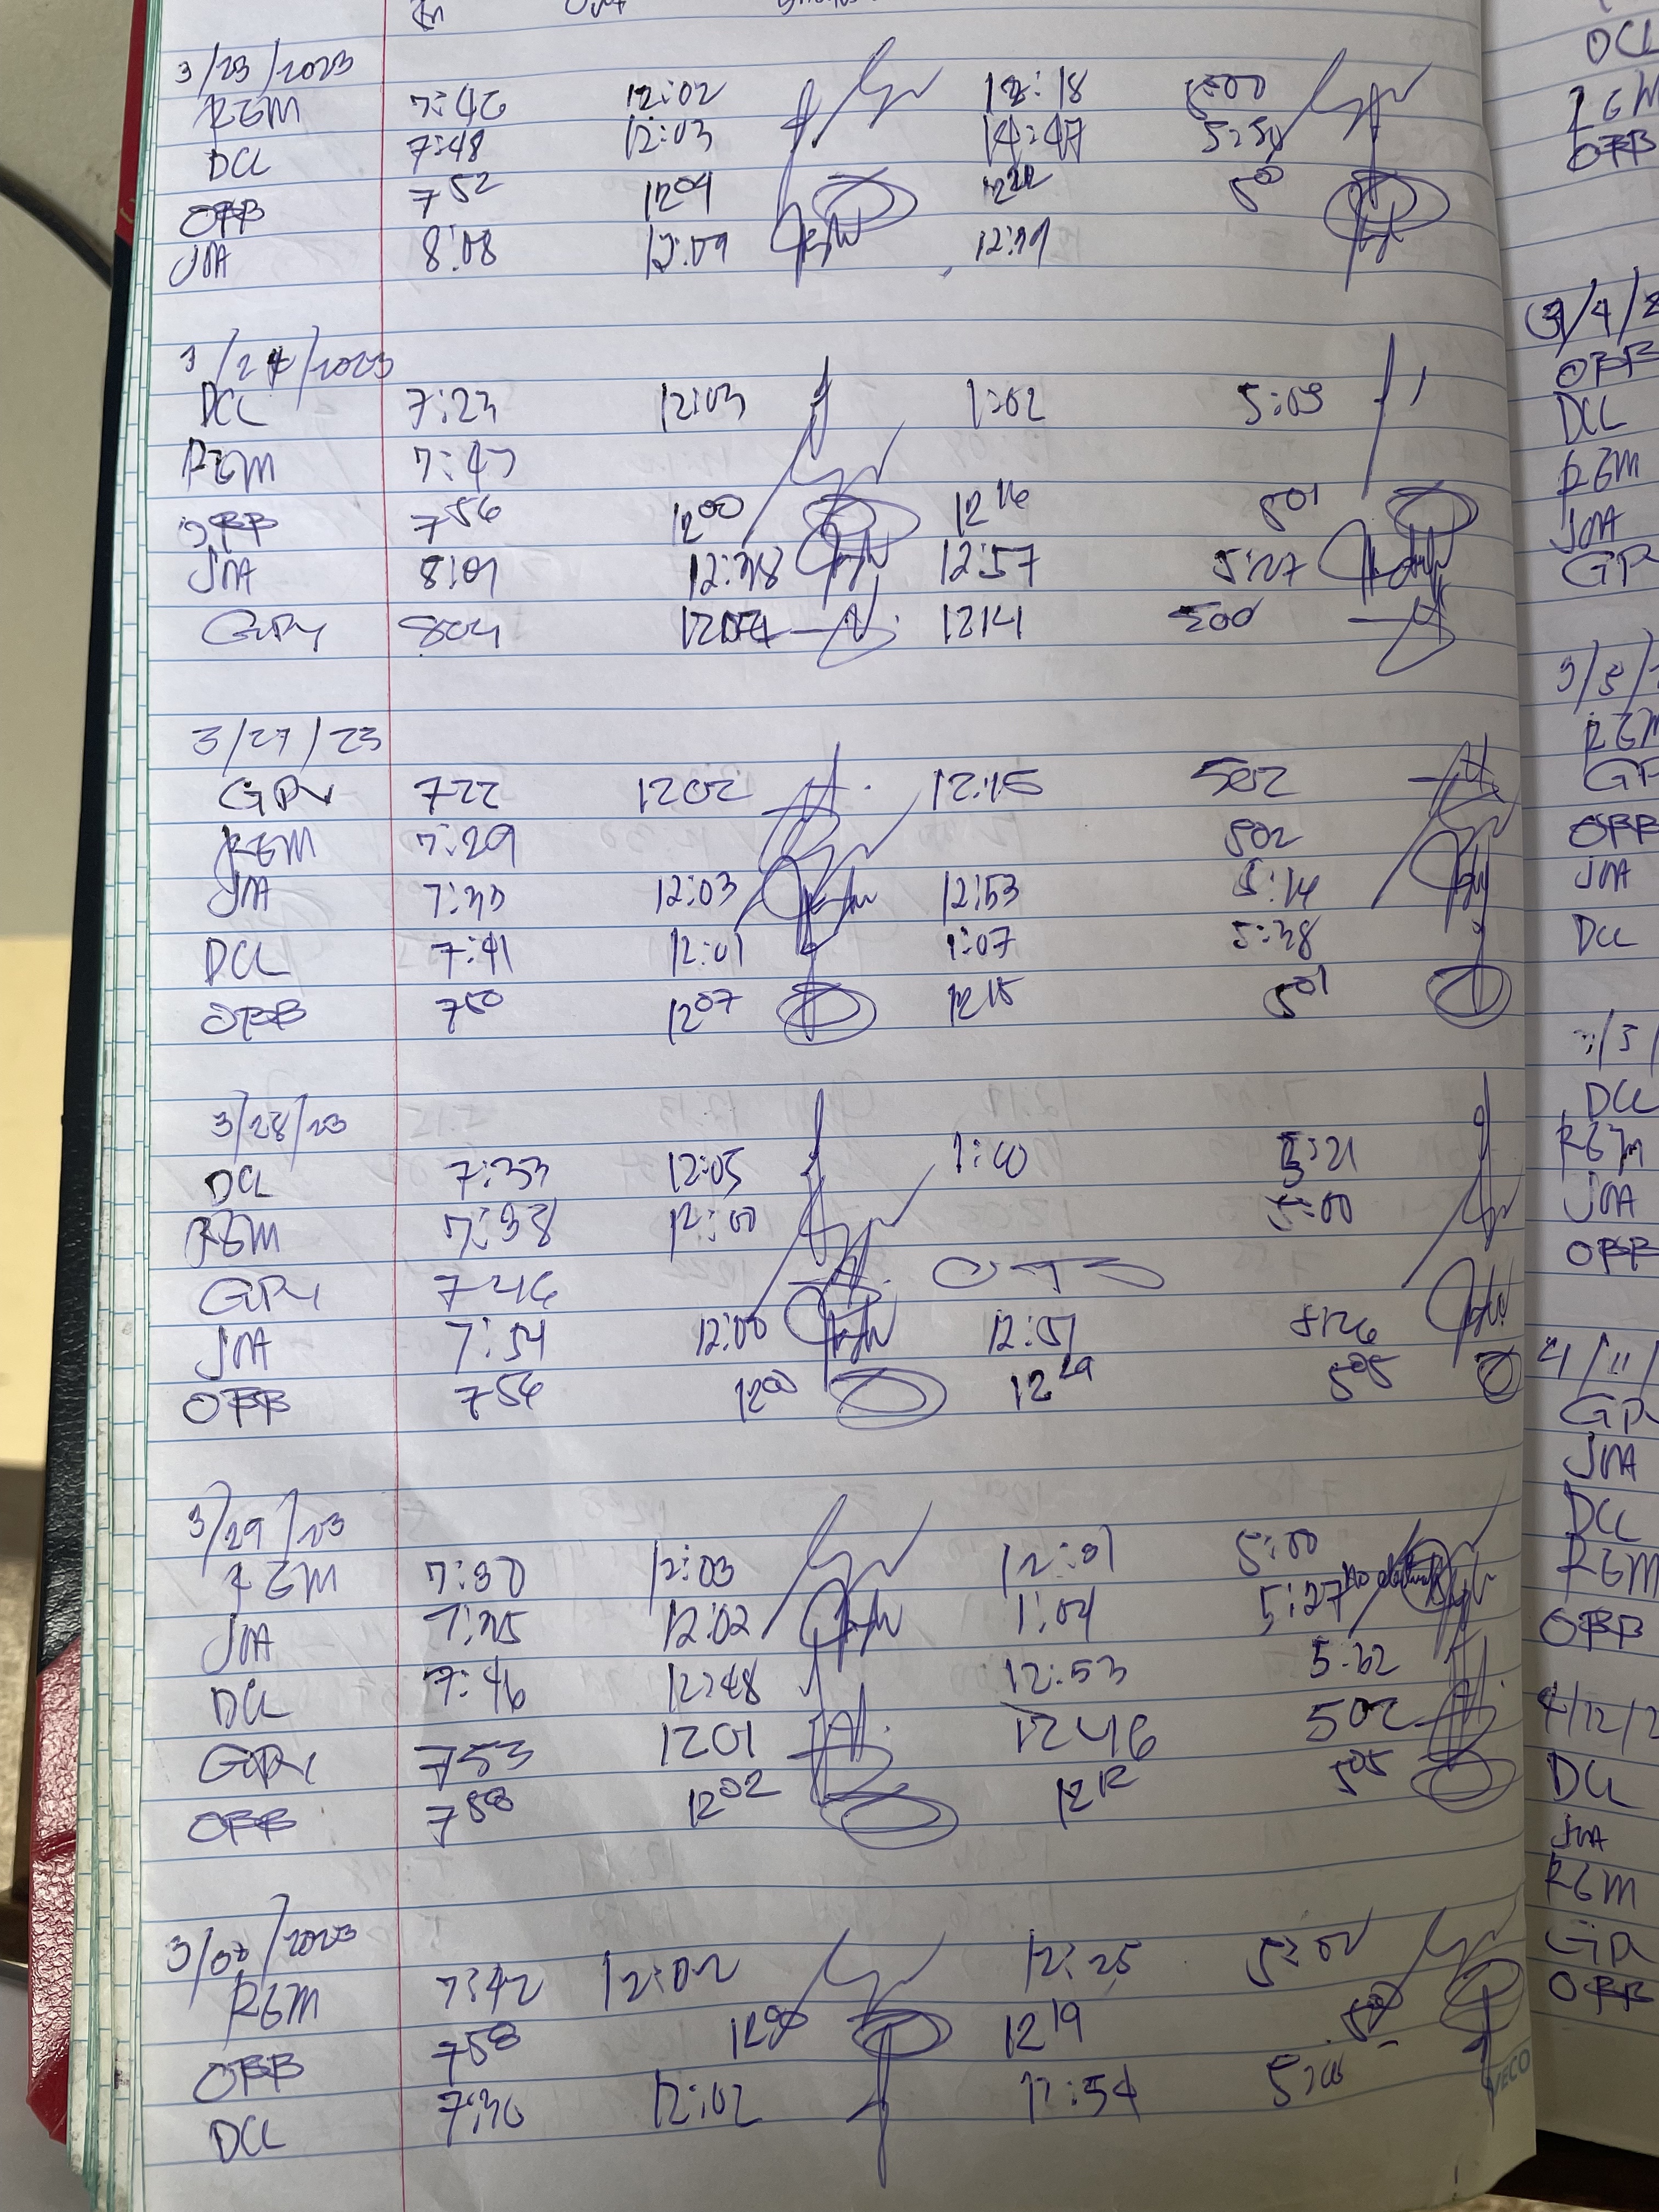 In Out
3/23/2023
REM 7:46 12:02 12:18 5:00
DCL 7:48 12:03
OBB 7 52 12 04 12 22 5 00
JMA 8:08 12:09 12:19
3/24/2023
DCL 7:23 12:03 1:02 5:05
REM 7:47
OBB 7 56 12 00 12 16 5 01
JMA 8:01 12:38 12:57 5:27
GPY 804 1204 1214 500
3/27/23
GPY 722 1202 12:15 502
REM 7:29 502
JMA 7:33 12:03 12:53 5:14
DCL 7:41 12:01 1:07 5:38
OBB 7 50 12 07 12 15 5 01
3/28/23
DCL 7:33 12:05 1:00 5:21
REM 7:38 12:00 5:00
GPY 746
JMA 7:54 12:00 12:51 5:26
OBB 7 56 12 00 12 29 5 05
3/29/23
REM 7:30 12:03 12:01 5:00
JMA 7:35 12:02 1:04 5:27
DCL 7:46 12:48 12:53 5:32
GPY 753 1201 1246 502
OBB 7 58 12 02 12 12 5 05
3/30/2023
REM 7:42 12:02 12:25 5:01
OBB 7 58 12 19
DCL 7:36 12:02 12:54
VECO
DCL
REM
OBB
3/4/2
OBB
DCL
REM
JMA
GP
REM
GP
OBB
JMA
DCL
DCL
REM
JMA
OBB
4/11/
GP
JMA
DCL
REM
OBB
4/12/2
DCL
JMA
REM
GP
OBB